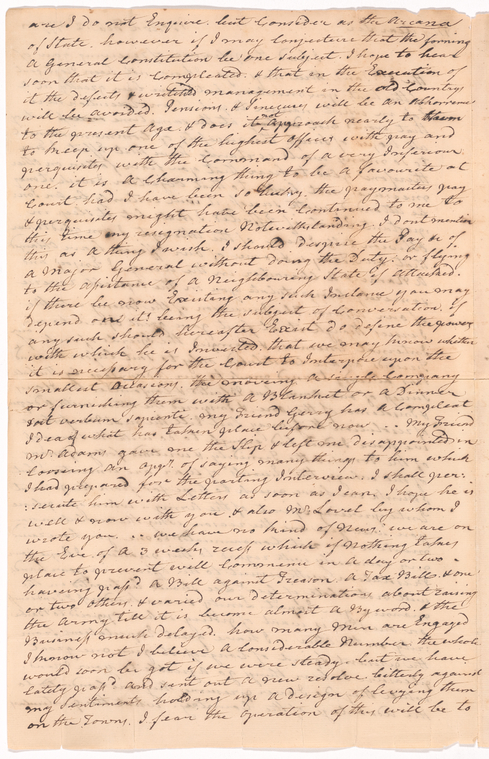 are I do not Enquire. but Consider as the Arcana
of State. however if I may conjecture that the forming
A General Constitution be one subject. I hope to hear
soon that it is Compleated. & that in the Execution of
it the defects & wretched management in the old Country
will be avoided. Pensions, & Sinecures will be an abhorrence
to the present Age. & does it not approach nearly to them
to keep up one of the highest offices with pay and
perquisites with the Command of a very Inferiour
one. it is A Charming thing to be a favourite at
Court had I have been so lucky. the paymasters pay
& perquisites might have been Continued to me to
this time my resignation Notwithstanding. I dont mention
this as A thing I wish. I should despise the Pay &c of
A Major General without doing the Duty. or flying
to the Assistance of A Neighbouring State if Attacked.
if there be now Existing any such Instance you may
depend on its being the subject of Conversation. if
any such should hereafter Exist do define the powers
with which he is Invested, that we may know whether
it is necessary for the Court to Interpose upon the
smallest Occasions. the moveing A single Company
or furnishing them with A Blanket or A Dinner
Sat verbum sapienti. my Friend Gerry has A Compleat
Idea of what has taken place before now . . . My Friend
Mr Adams gave me the Slip & left me disappointed in
looseing An oppy. of saying many things to him which
I had prepared for the parting Interview. I shall per-
:secute him with Letters as soon as I can, I hope he is
well & now with you & also Mr Lovel by whom I
wrote you. . . we have no kind of News. we are on
the Eve of A 3 weeks recess which if Nothing takes
place to prevent will Commence in A day or two
haveing pass'd A Bill against Treason. A Tax Bill. & one
or two others. & varied our determinations about raising
the Army till it is become almost A By word. & the
Business much delayed. how many Men are Engaged
I know not I believe A Considerable Number. the whole
would soon be got if we were steady. but we have
lately pass'd and sent out A new resolve bitterly against
my sentiments holding up A design of levying them
on the Towns. I fear the operation of this will be to